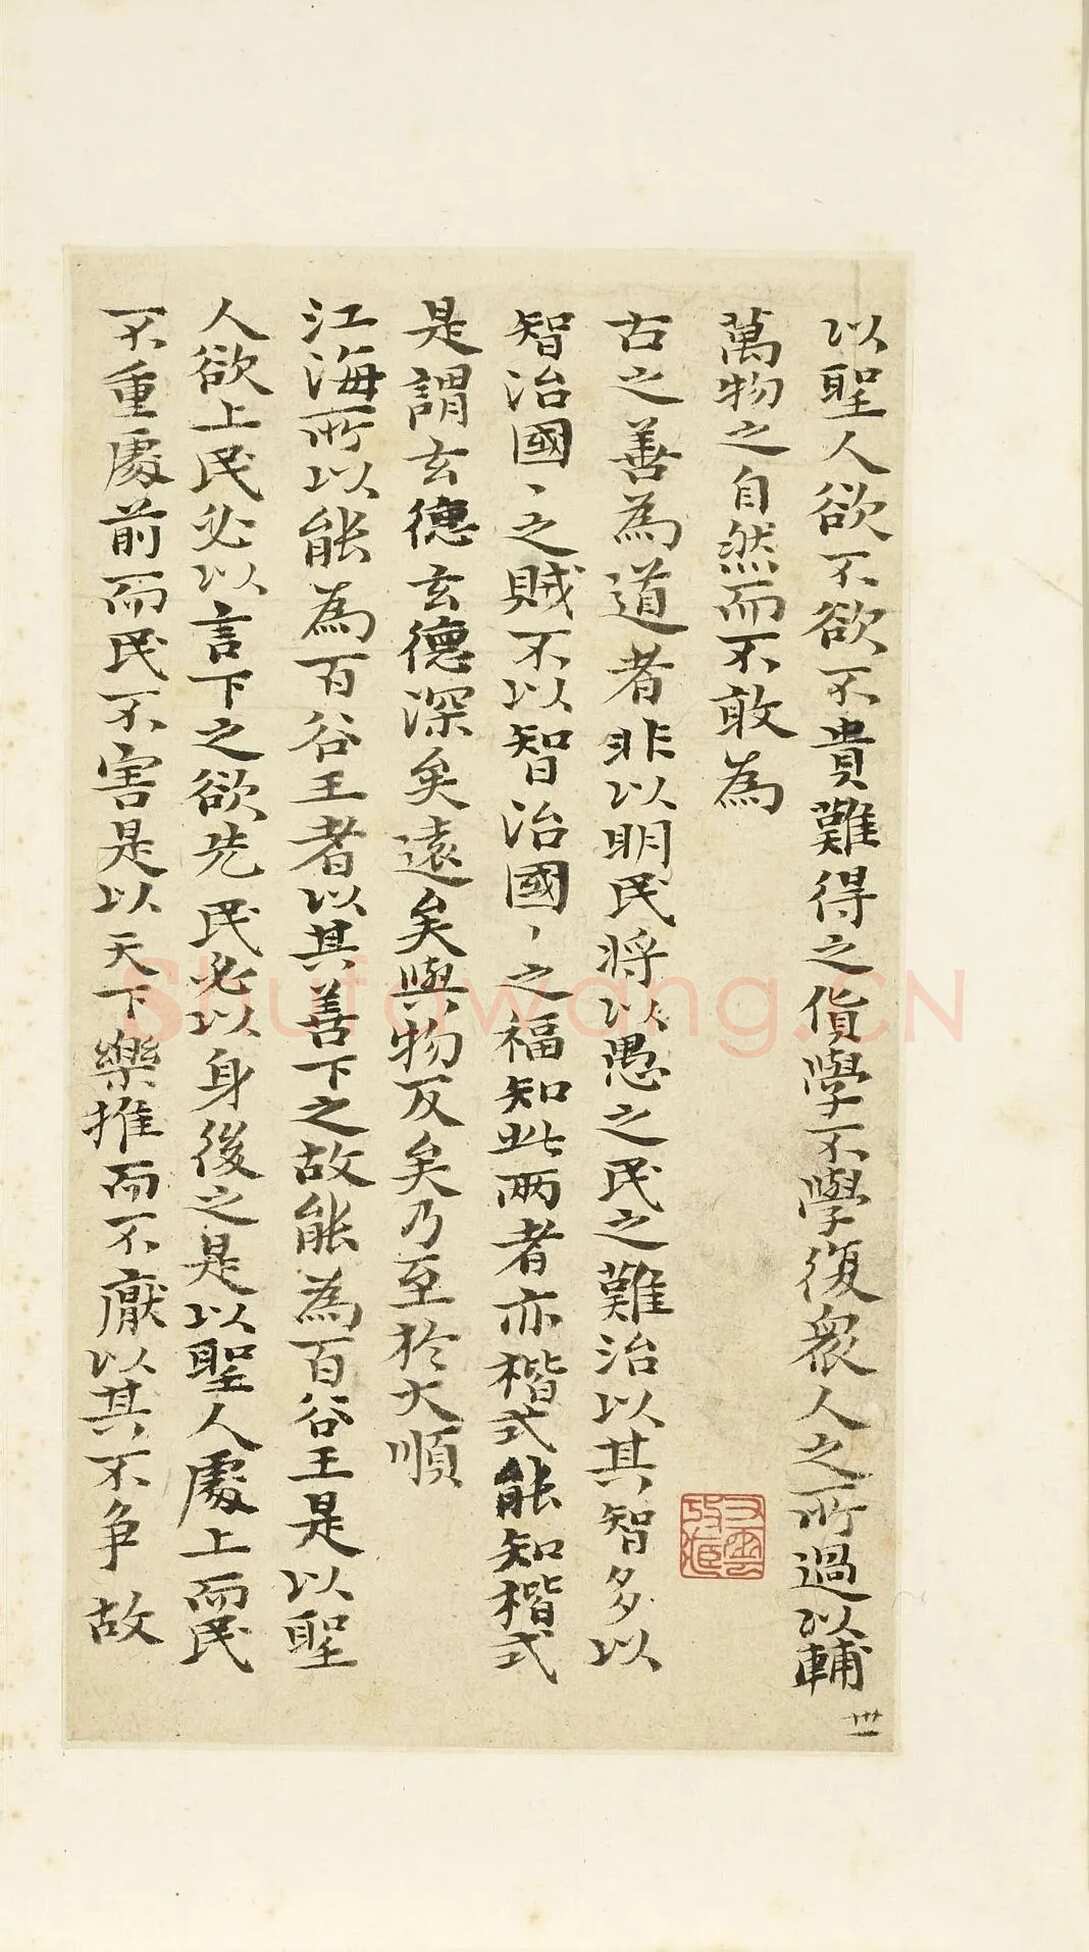 以聖人欲不欲不貴難得之貨學不學復衆人之所過以輔
萬物之自然而不敢為
古之善為道者非以明民將以愚之民之難治以其智多以
智治國、之賊不以智治國、之福知此兩者亦楷式能知楷式
是謂玄德玄德深矣遠矣與物反矣乃至於大順
江海所以能為百谷王者以其善下之故能為百谷王是以聖
人欲上民必以言下之欲先民必以身後之是以聖人處上而民
不重處前而民不害是以天下樂推而不厭以其不争故
卅一
Shufawang.CN